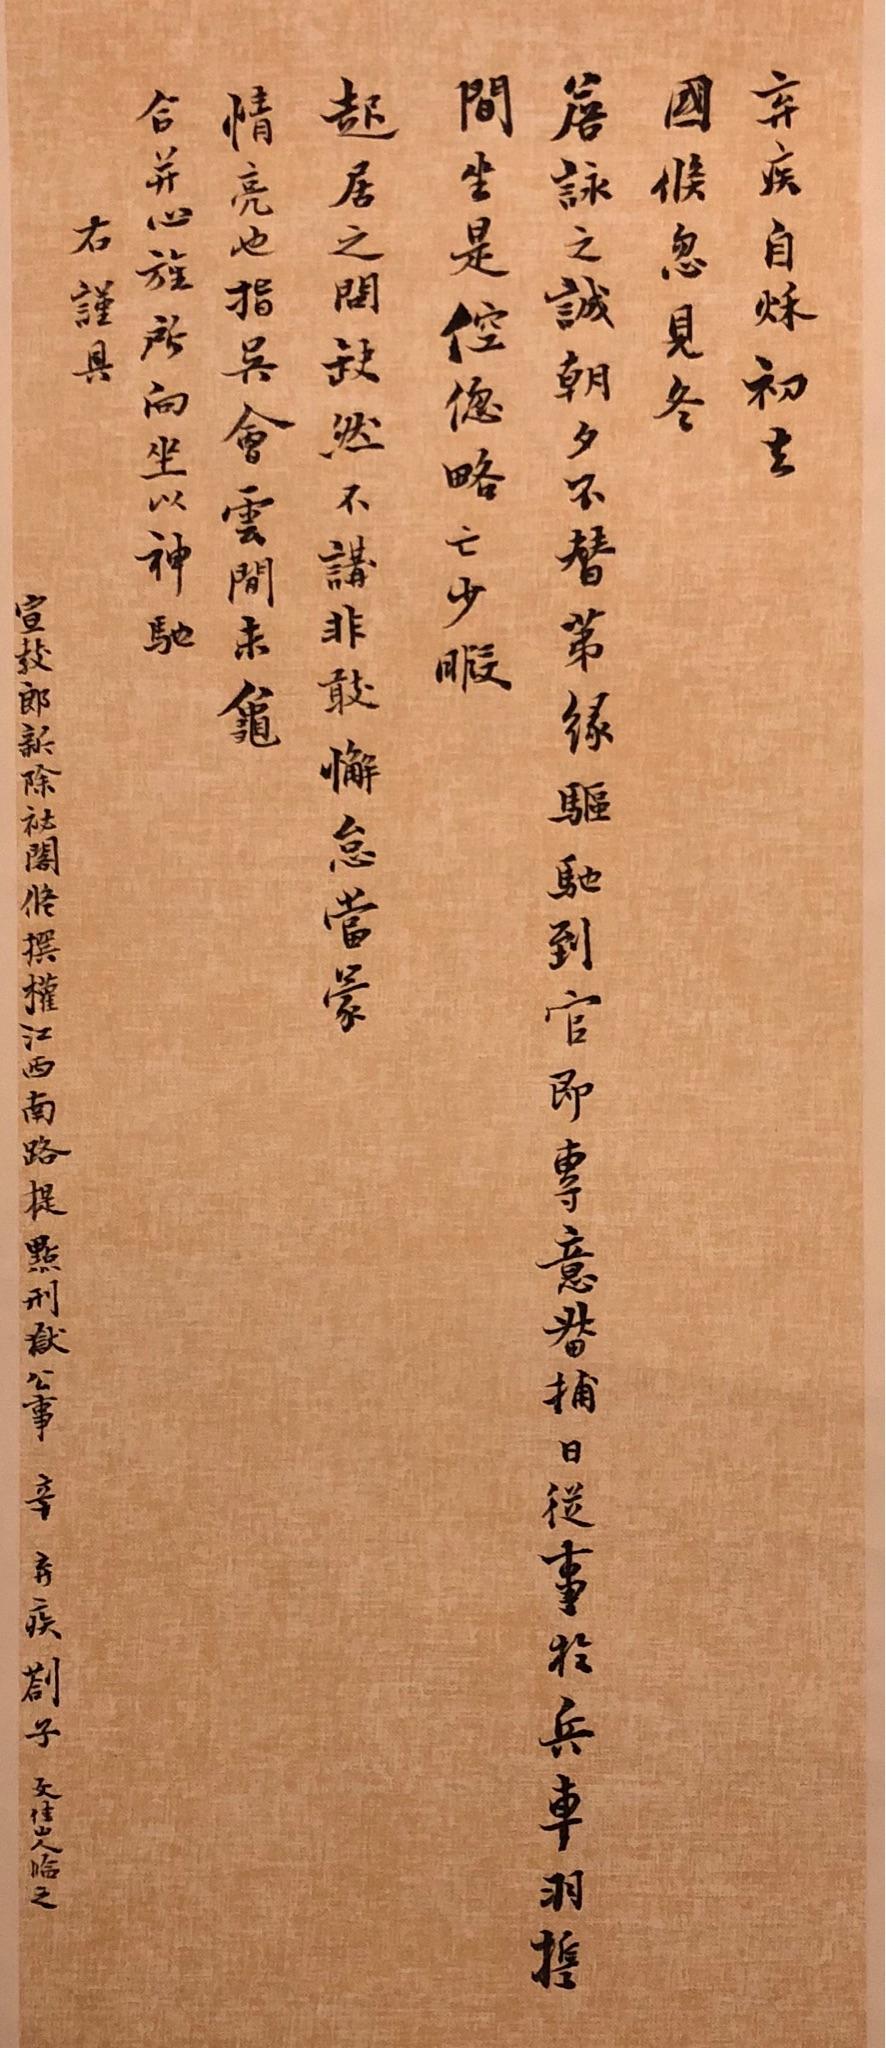 弃疾自秌初去
國候忽見冬
詹詠之誠朝夕不替第緣驅馳到官即專意督捕日從事於兵車羽檄
間坐是倥傯略亡少暇
起居之問缺然不講非敢懈怠當蒙
情亮也指吳會雲間未龕
合并心旌所向坐以神馳
右謹具
宣教郎新除祕閣修撰權江西南路提點刑獄公事 辛弃疾劄子
山人臨之